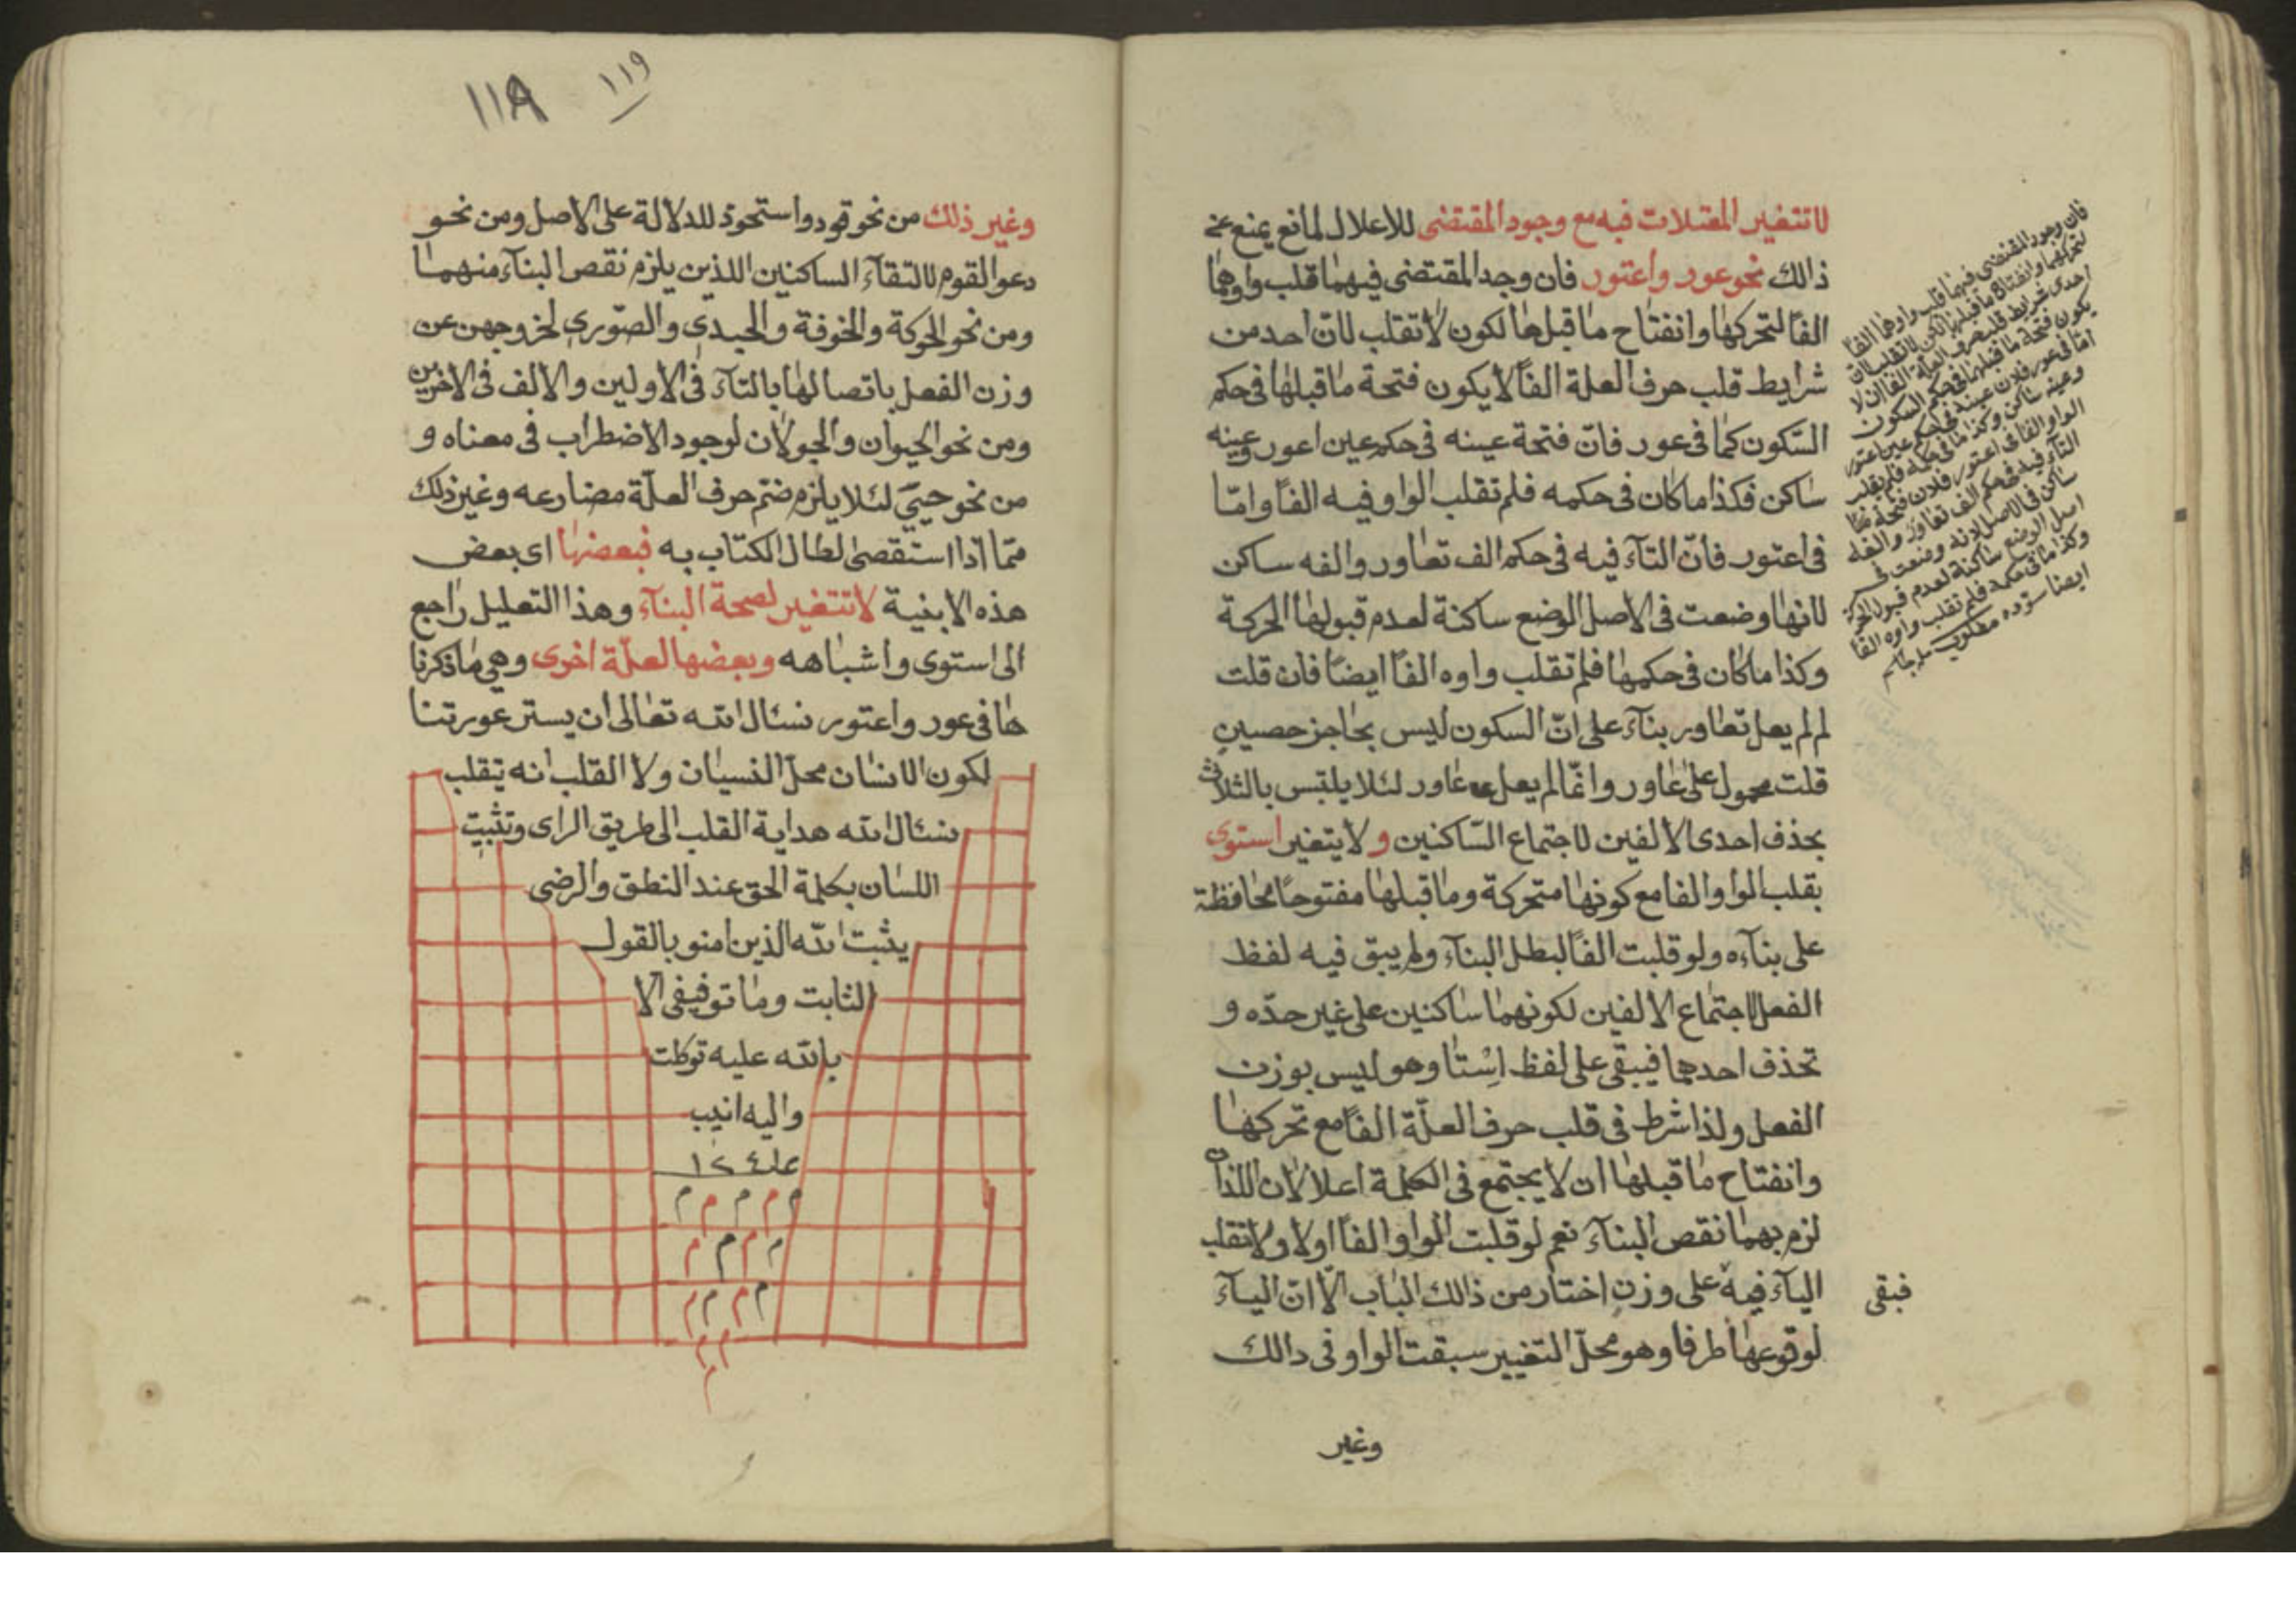 لا تتغير المعتلات فيه مع وجود المقتضى للاعلال لمانع يمنع عن
ذالك نحو عور واعتور فان وجد المقتضى فيهما قلب واوهما
الفاً لتحركها وانفتاح ما قبلها لكون لا تقلب لانّ احد من
شرايط قلب حرف العلة الفاً لا يكون فتحة ما قبلها فى حكم
السّكون كما فى عور فانّ فتحة عينه فى حكم عين اعور وعينه
ساكن فكذا ما كان فى حكمه فلم تقلب الواو فيه الفاً وامّا
فى اعتور فانّ التآء فيه فى حكم الف تعاور والفه ساكن
لانها وضعت فى الاصل الوضع ساكنة لعدم قبولها الحركة
وكذا ما كان فى حكمها فلم تقلب واوه الفاً ايضاً فان قلت
لم لم يعل تعاور بنآء على انّ السكون ليس بحاجز حصين
قلت محمول على عاور وانّما لم يعل عاور لئلا يلتبس بالثلاث
بحذف احدى الالفين لاجتماع السّاكنين ولا يتغير استوى
بقلب الواو الفا مع كونها متحركة وما قبلها مفتوحاً محافظة
على بنآءه ولو قلبت الفاً لبطل البنآء ولم يبق فيه لفظ
الفعل لاجتماع الالفين لكونهما ساكنين على غير حدّه و
تحذف احدهما فيبقى على لفظ اِسْتا وهو ليس بوزن
الفعل ولذا شرط فى قلب حرف العلّة الفاً مع تحركها
وانفتاح ما قبلها ان لا يجتمع فى الكلمة اعلالان اللذان
لزم بهما نقص البنآء نعم لو قلبت الواو الفاً اولا ولا تقلب
اليآء فيه على وزن اختار من ذالك الباب الّا انّ اليآء
لوقوعها طرفا وهو محلّ التغيير سبقت الواو فى دالك
وغير
فبقى
فان وجود المقتضى فيهما قلب واوهما الفاً
لتحركها وانفتاح ما قبلها لكن لا تقلب لان
احدى شرايط قلب حرف العلة الفا ان لا
يكون فتحة ما قبلها فى حكم السكون
امّا فى عور فلان عينه فى حكم عين اعور
وعينه ساكن وكذا ما فى حكمه فلم يقلب
الواو الفا فى اعتور فلان فتحة
التآء فيه فى حكم الف تعاور والفه
ساكن فى الاصل لانه وضعت فى
اصل الوضع ساكنة لعدم قبول الحركة
وكذا ما فى حكمه فلم تقلب واوه الفا
ايضا
١١٨ ١١٩
وغير ذلك من نحو قود واستحوذ للدلالة على الاصل ومن نحو
دعوا القوم لالتقآء الساكنين اللذين يلزم نقص البنآء منهما
ومن نحو الحوكة والخوفة والحيدى والصّورى لخروجهن عن
وزن الفعل باتصالها بالتآء فى الاولين والالف فى الاخرين
ومن نحو الحيوان والجولان لوجود الاضطراب فى معناه و
من نحو حيىَ لئلا يلزم ضمّ حرف العلّة مضارعه وغير ذلك
ممّا اذا استقصى لطال الكتاب به فبعضها اى بعض
هذه الابنية لا تتغير لصحة البنآء وهذا التعليل راجع
الى استوى واشباهه وبعضها لعلّة اخرى وهى ما ذكرنا
ها فى عور واعتور نسئال الله تعالى ان يستر عورتنا
لكون الانسان محلّ النسيان ولا القلب انه يتقلب
نسئال الله هداية القلب الى طريق الراى وتثبيت
اللسان بكلمة الحق عند النطق والرضى
يثبت الله الذين امنو بالقول
الثابت وما توفيقى الا
بالله عليه توكلت
واليه انيب
م م م م م
م م م م
م م م م
م م
م